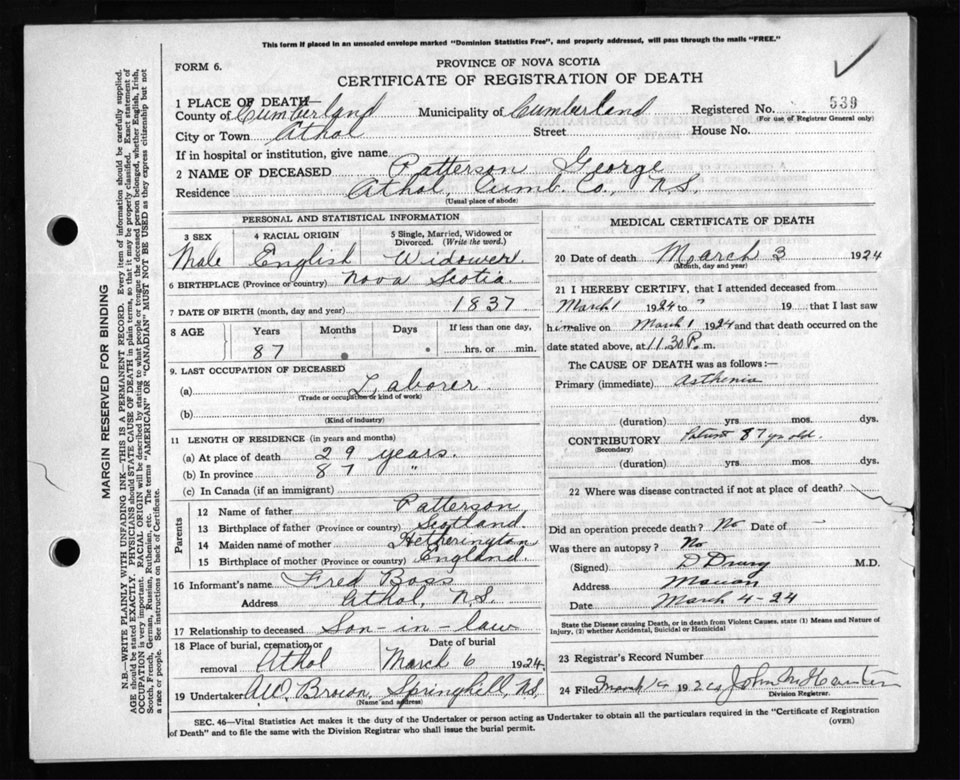 This form if placed in an unsealed envelope marked "Dominion Statistics Free", and properly addressed, will pass through the mails "FREE."
FORM 6.
PROVINCE OF NOVA SCOTIA
CERTIFICATE OF REGISTRATION OF DEATH
1 PLACE OF DEATH—
County of Cumberland Municipality of Cumberland Registered No. 539
(For use of Registrar General only)
City or Town Athol Street House No.
If in hospital or institution, give name
2 NAME OF DECEASED Patterson George
Residence Athol, Cumb. Co., N.S.
(Usual place of abode)
PERSONAL AND STATISTICAL INFORMATION
3 SEX Male
4 RACIAL ORIGIN English
5 Single, Married, Widowed or Divorced. (Write the word.) Widower.
6 BIRTHPLACE (Province or country) Nova Scotia
7 DATE OF BIRTH (month, day and year) 1837
8 AGE Years Months Days If less than one day,
87 hrs. or min.
9. LAST OCCUPATION OF DECEASED
(a) Laborer.
(Trade or occupation or kind of work)
(b)
(Kind of industry)
11 LENGTH OF RESIDENCE (in years and months)
(a) At place of death 29 years.
(b) In province 87 "
(c) In Canada (if an immigrant)
Parents
12 Name of father Patterson
13 Birthplace of father (Province or country) Scotland.
14 Maiden name of mother Hetherington
15 Birthplace of mother (Province or country) England.
16 Informant's name Fred Boss
Address Athol, N.S.
17 Relationship to deceased Son-in-law
18 Place of burial, cremation or removal Athol
Date of burial March 6 1924.
19 Undertaker A.W. Brown, Springhill, N.S.
(Name and address)
MEDICAL CERTIFICATE OF DEATH
20 Date of death March 3 1924
(Month, day and year)
21 I HEREBY CERTIFY, that I attended deceased from
March 1 1924 to " 19 that I last saw
him alive on March 1 1924 and that death occurred on
date stated above, at 11.30 P. m.
The CAUSE OF DEATH was as follows:—
Primary (immediate) Asthenia
(duration) yrs. mos. dys.
CONTRIBUTORY 87 yrs old.
(Secondary)
(duration) yrs. mos. dys.
22 Where was disease contracted if not at place of death?
Did an operation precede death? No Date of -
Was there an autopsy? No
(Signed) D Drury M.D.
Address Maccan
Date March 4-24
State the Disease causing Death, or in death from Violent Causes, state (1) Means and Nature of
Injury, (2) whether Accidental, Suicidal or Homicidal
23 Registrar's Record Number
24 Filed March 192
Division Registrar.
SEC. 46—Vital Statistics Act makes it the duty of the Undertaker or person acting as Undertaker to obtain all the particulars required in the "Certificate of Registration
of Death" and to file the same with the Division Registrar who shall issue the burial permit.
(OVER)
MARGIN RESERVED FOR BINDING
N.B.—WRITE PLAINLY WITH UNFADING INK—THIS IS A PERMANENT RECORD. Every item of information should be carefully supplied.
AGE should be stated EXACTLY. PHYSICIANS should STATE CAUSE OF DEATH in plain terms, so that it may be properly classified. Exact statement of
OCCUPATION is very important. RACIAL ORIGIN will be described by stating to what people or tongue the deceased person belonged, whether English, Irish,
Scotch, French, German, Russian, Ruthenian, etc. The terms "AMERICAN" OR "CANADIAN" MUST NOT BE USED as they express citizenship but not
a race or people. See instructions on back of Certificate.